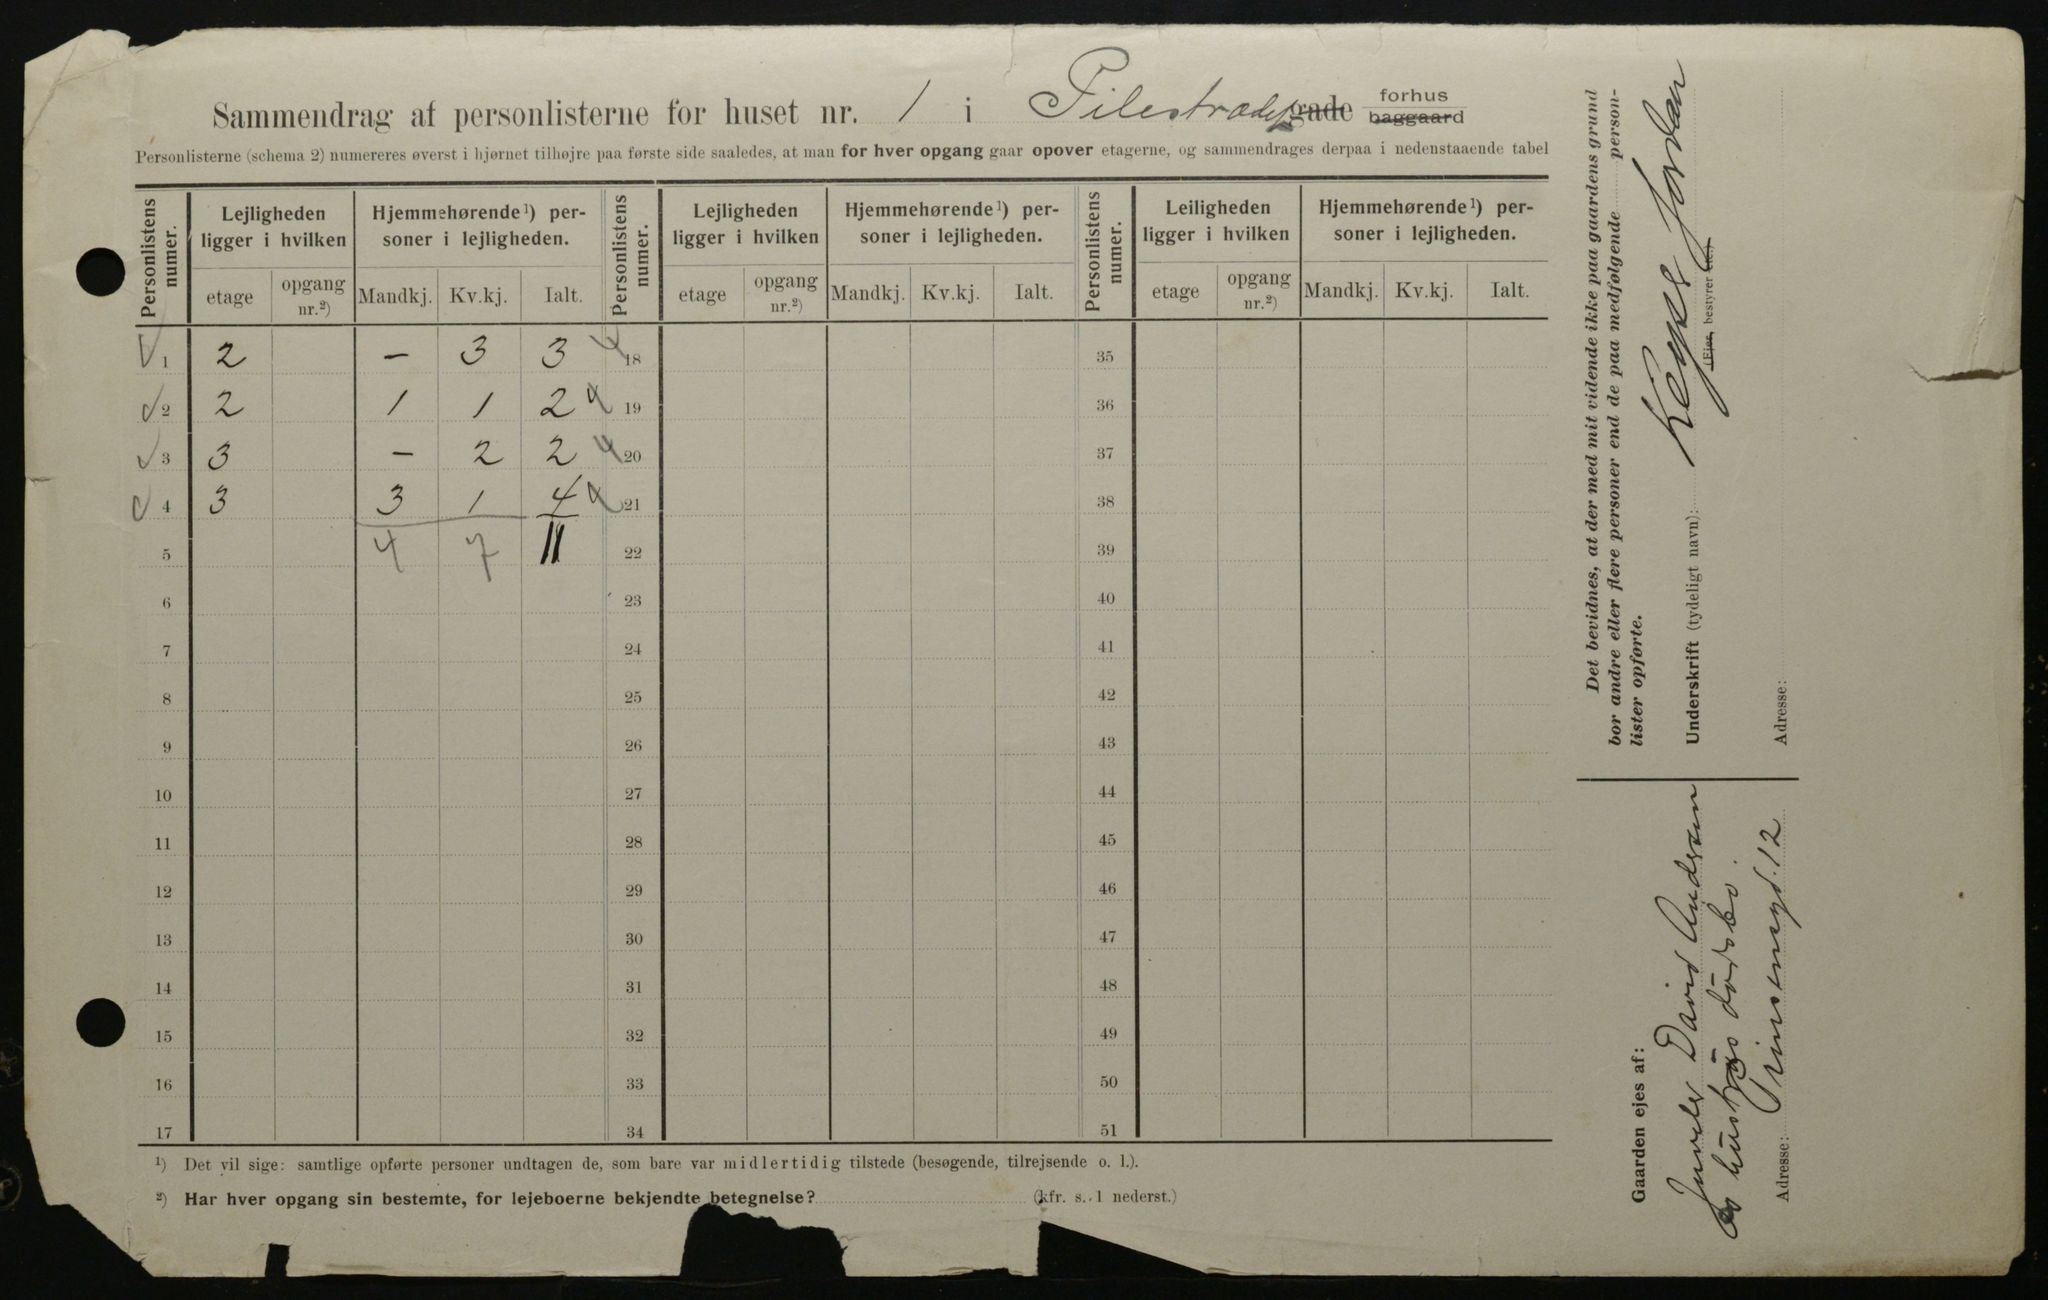 Sammendrag af personlisterne for huset nr. 1 i Pilestrædet gade forhus baggaard
Personlisterne (schema 2) numereres øverst i hjørnet tilhøjre paa første side saaledes, at man for hver opgang gaar opover etagerne, og sammendrages derpaa i nedenstaaende tabel
Personlistens numer. Lejligheden ligger i hvilken Hjemmehørende¹) personer i lejligheden. Personlistens numer. Lejligheden ligger i hvilken Hjemmehørende¹) personer i lejligheden. Personlistens numer. Leiligheden ligger i hvilken Hjemmehørende¹) personer i lejligheden.
etage opgang nr.²) Mandkj. Kv.kj. Ialt. etage opgang nr.²) Mandkj. Kv.kj. Ialt. etage opgang nr.²) Mandkj. Kv.kj. Ialt.
1 2 – 3 3 18 35
2 2 1 1 2 19 36
3 3 – 2 2 20 37
4 3 3 1 4 21 38
5 4 7 11 22 39
6 23 40
7 24 41
8 25 42
9 26 43
10 27 44
11 28 45
12 29 46
13 30 47
14 31 48
15 32 49
16 33 50
17 34 51
¹) Det vil sige: samtlige opførte personer undtagen de, som bare var midlertidig tilstede (besøgende, tilrejsende o. l.).
²) Har hver opgang sin bestemte, for lejeboerne bekjendte betegnelse? (kfr. s. 1 nederst.)
Det bevidnes, at der med mit vidende ikke paa gaardens grund
bor andre eller flere personer end de paa medfølgende person-
lister opførte.
Underskrift (tydeligt navn): Keyser Jordan
(Ejer, bestyrer etc.)
Adresse:
Gaarden ejes af:
Juveler David Andersen
og hustrus dødsbo
Adresse: Prinsensgd. 12